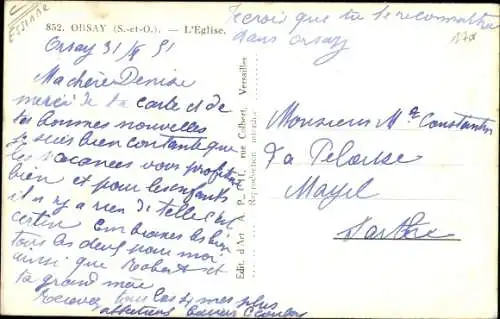 ESSONNE
852. ORSAY (S.-et-O.). — L'Eglise.
Je crois que tu te reconnaitra
dans orsay
Orsay 31/ /51
Ma chère Denise
merci de ta carte et de
tes bonnes nouvelles
je suis bien contente que
les vacances vous profitent
bien et pour les enfants
il n y a rien de tel c'est
certain Embrasses les bien
tous les deux pour moi
ainsi que Robert et
ta grand mère
Recevez tous les 4 mes plus
affectueux baisers
Edit. d'Art A. P., rue Colbert, Versailles
Reproduction interdite
Monsieur Me Constantin
La Pelouse
Mayet
Sarthe